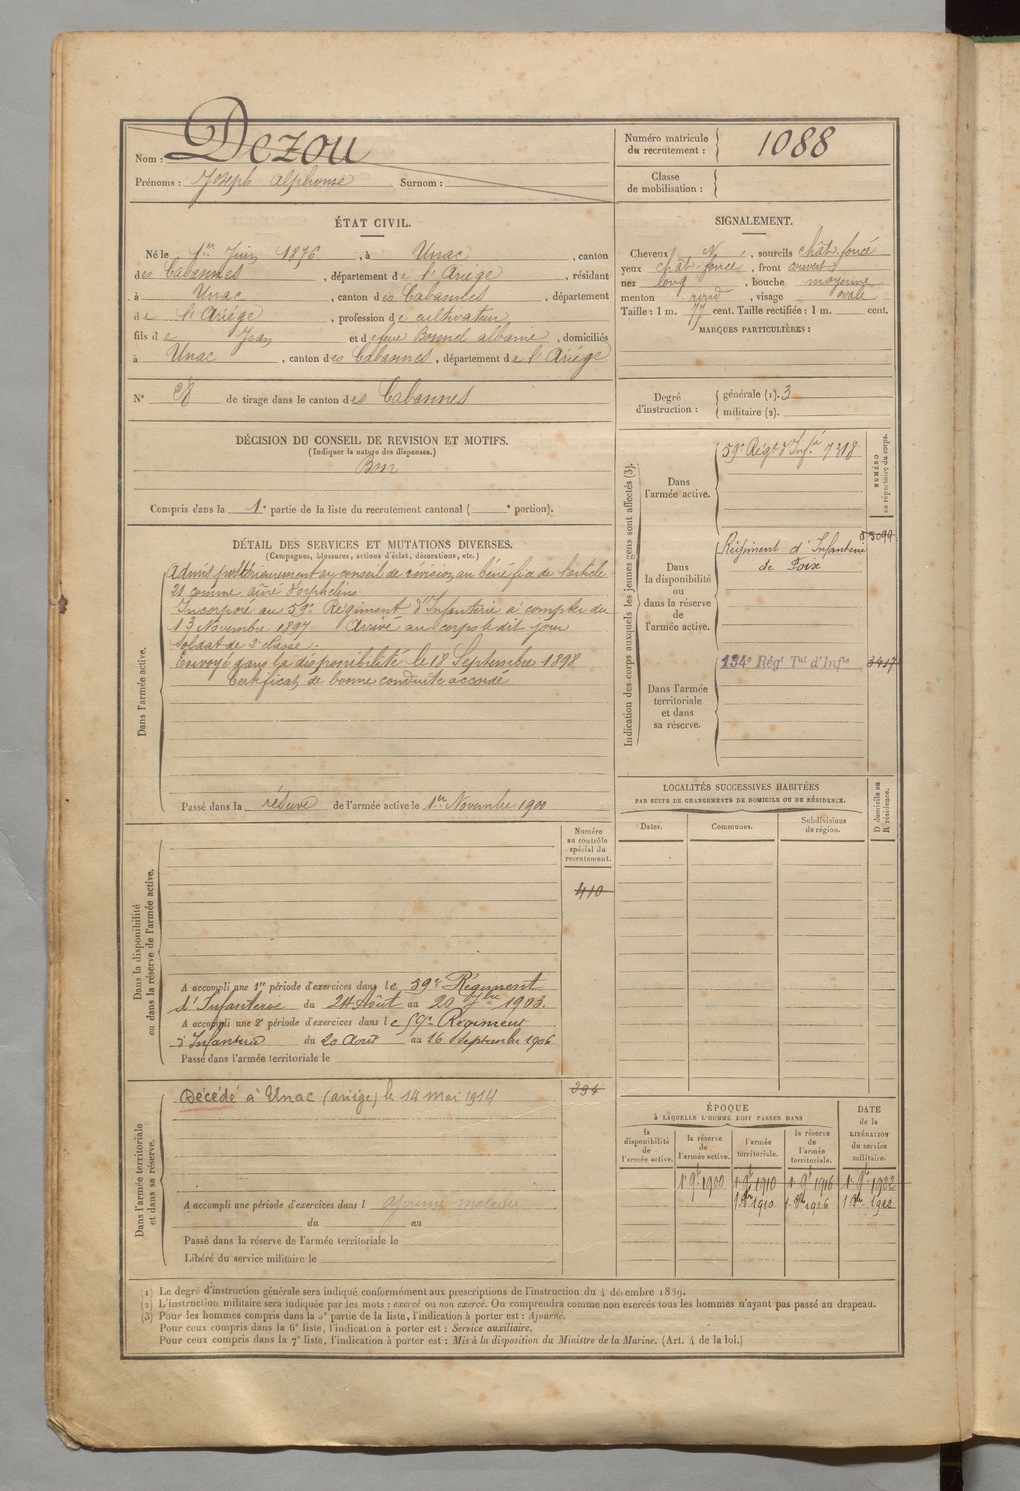 Nom : Dezou
Prénoms : Joseph Alphonse Surnom :
Numéro matricule du recrutement : 1088
Classe de mobilisation :
ÉTAT CIVIL.
Né le 1er Juin 1876, à Unac, canton
des Cabannes, département de l'Ariége, résidant
à Unac, canton des Cabannes, département
de l'Ariége, profession de cultivateur
fils de Jean et de feue Bonnel albanie, domiciliés
à Unac, canton des Cabannes, département de l'Ariége
N° 28 de tirage dans le canton des Cabannes
SIGNALEMENT.
Cheveux N, sourcils chât. foncé
yeux chât. foncé, front couvert
nez long, bouche moyenne
menton rond, visage ovale
Taille : 1 m. 77 cent. Taille rectifiée : 1 m. cent.
MARQUES PARTICULIÈRES :
Degré d'instruction :
générale (1). 3
militaire (2).
DÉCISION DU CONSEIL DE REVISION ET MOTIFS.
(Indiquer la nature des dispenses.)
Bon
Compris dans la 1e partie de la liste du recrutement cantonal ( e portion).
DÉTAIL DES SERVICES ET MUTATIONS DIVERSES.
(Campagnes, blessures, actions d'éclat, décorations, etc.)
Dans l'armée active.
Admis postérieurement au conseil de révision au bénéfice de l'article
21 comme aîné d'orphelins.
Incorporé au 59e Régiment d'Infanterie à compter du
13 Novembre 1897. Arrivé au corps le dit jour
Soldat de 2e classe.
Envoyé dans la disponibilité le 18 Septembre 1898
Certificat de bonne conduite accordé
Passé dans la réserve de l'armée active le 1er Novembre 1900
Indication des corps auxquels les jeunes gens sont affectés (3).
NUMÉRO au répertoire du corps.
Dans l'armée active.
59e Régt d'Infie 7318
Dans la disponibilité ou dans la réserve de l'armée active.
Régiment d'Infanterie
de Foix
Dans l'armée territoriale et dans sa réserve.
134e Régt Tal d'Infie 3417
LOCALITÉS SUCCESSIVES HABITÉES
PAR SUITE DE CHANGEMENTS DE DOMICILE OU DE RÉSIDENCE.
Dates. Communes. Subdivisions de région. D domicile ou R résidence.
Dans la disponibilité ou dans la réserve de l'armée active.
Numéro au contrôle spécial du recrutement.
410
A accompli une 1re période d'exercices dans le 59e Régiment
d'Infanterie du 24 Août au 20 7bre 1903.
A accompli une 2e période d'exercices dans le 59e Régiment
d'Infanterie du 20 Août au 16 Septembre 1906
Passé dans l'armée territoriale le
Dans l'armée territoriale et dans sa réserve.
394
Décédé à Unac (ariége) le 14 mai 1914
A accompli une période d'exercices dans l ajourné malade
du au
Passé dans la réserve de l'armée territoriale le
Libéré du service militaire le
ÉPOQUE
À LAQUELLE L'HOMME DOIT PASSER DANS
la disponibilité de l'armée active. la réserve de l'armée active. l'armée territoriale. la réserve de l'armée territoriale. DATE de la LIBÉRATION du service militaire.
1er 9bre 1900 1er 9bre 1910 1er 9bre 1916 1er 9bre 1922
1er 8bre 1910 1er 8bre 1916 1er 8bre 1922
(1) Le degré d'instruction générale sera indiqué conformément aux prescriptions de l'instruction du 4 décembre 1889.
(2) L'instruction militaire sera indiquée par les mots : exercé ou non exercé. On comprendra comme non exercés tous les hommes n'ayant pas passé au drapeau.
(3) Pour les hommes compris dans la 5e partie de la liste, l'indication à porter est : Ajourné.
Pour ceux compris dans la 6e liste, l'indication à porter est : Service auxiliaire.
Pour ceux compris dans la 7e liste, l'indication à porter est : Mis à la disposition du Ministre de la Marine. (Art. 4 de la loi.)